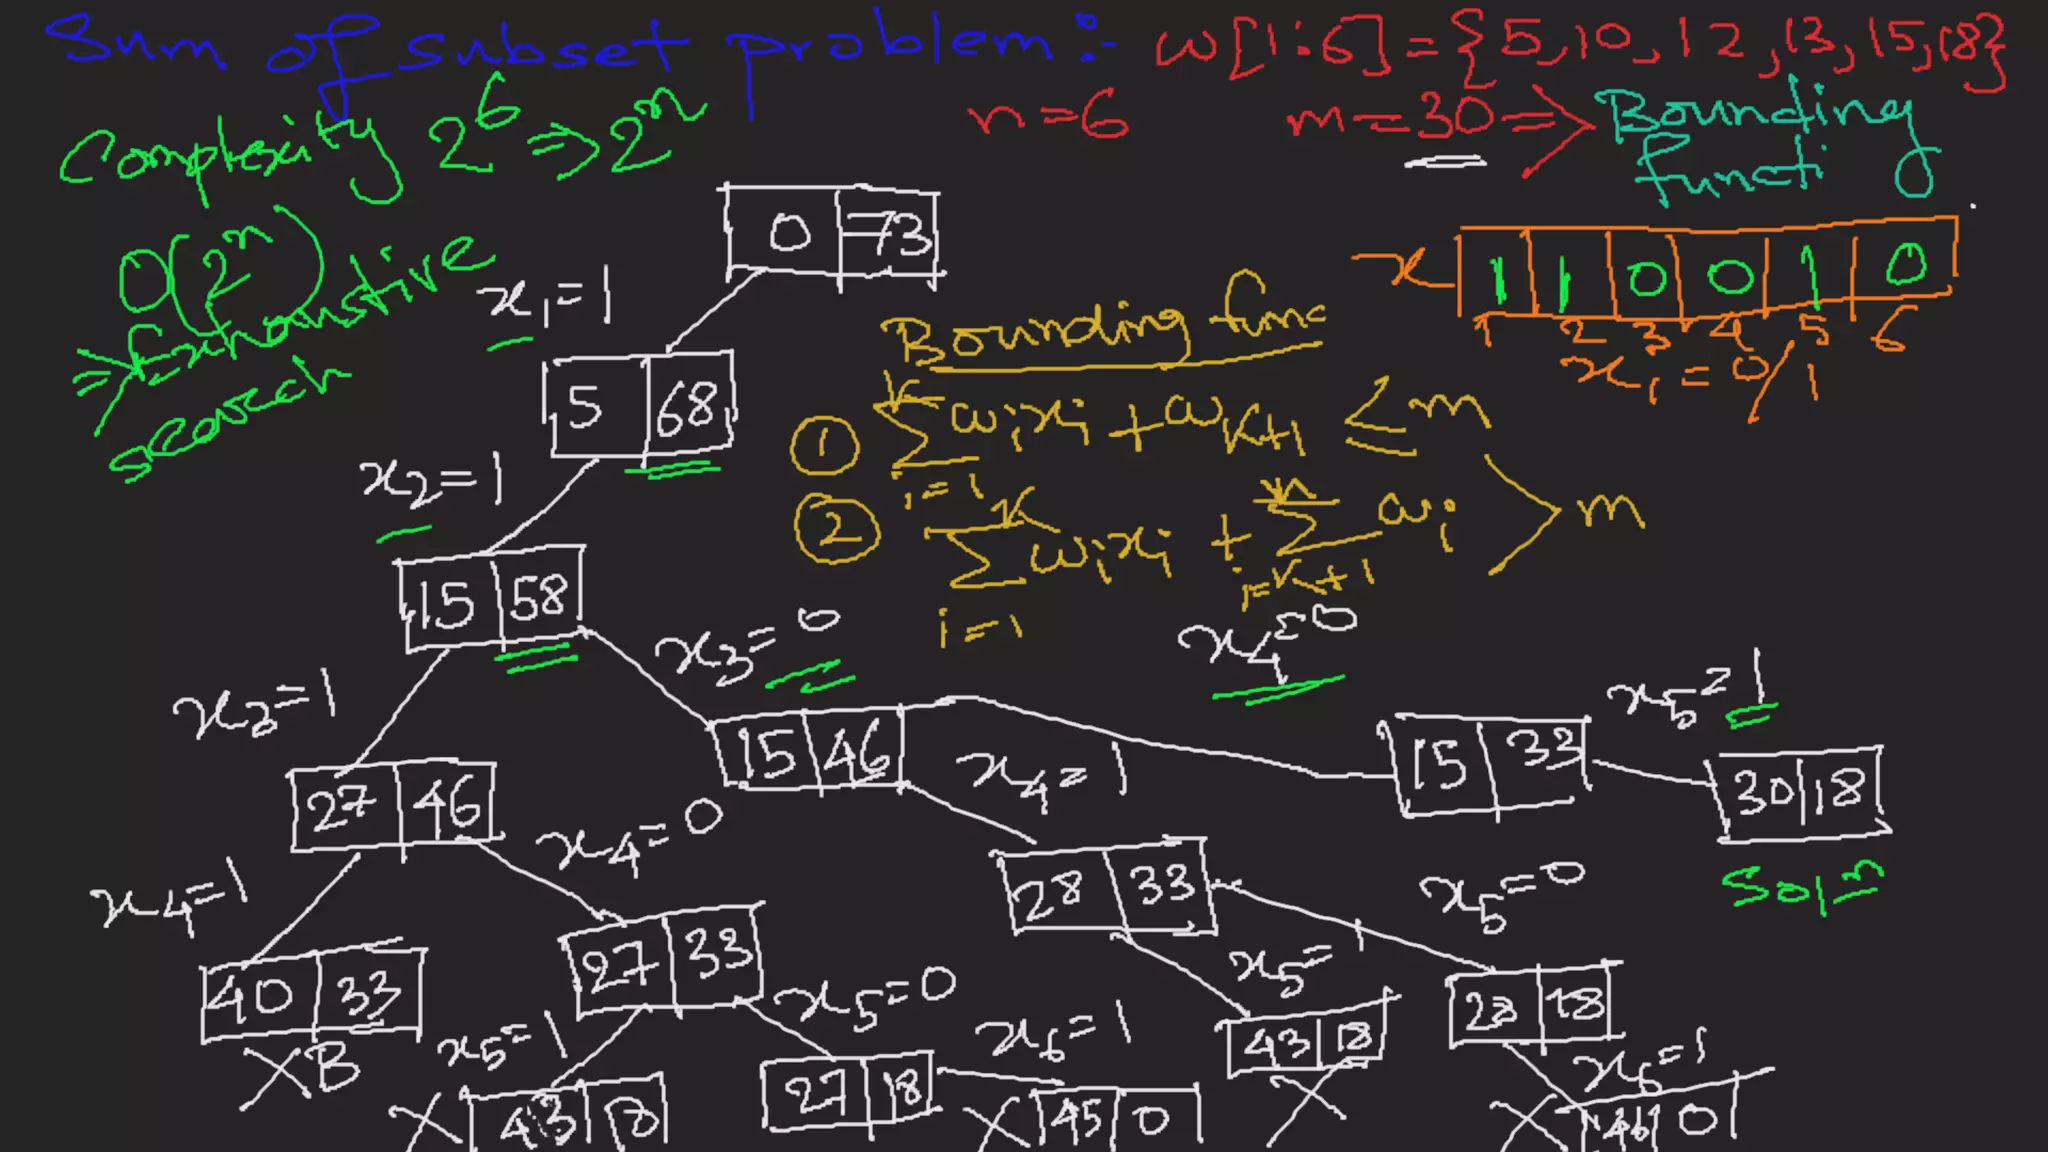 Sum of subset problem :- w[1:6] = {5,10,12,13,15,18}
n=6 m=30 => Bounding functi
Complexity 2^6 => 2^n
O(2^n)
=> Exhaustive search
0 73
x 1 1 0 0 1 0
1 2 3 4 5 6
x_i = 0/1
x_1=1
Bounding func
5 68
① Σ_{i=1}^{k} w_i x_i + w_{k+1} ≤ m
② Σ_{i=1}^{k} w_i x_i + Σ_{i=k+1}^{n} w_i > m
x_2=1
15 58
x_3=0
x_4=0
x_5=1
x_3=1
15 46
x_4=1
15 33
30 18
Soln
27 46
x_4=0
x_4=1
28 33
x_5=0
40 33
27 33
x_5=0
x_5=1
23 18
XB
x_5=1
x_6=1
43 18
x_6=1
X 43 8
27 18
X 45 0
X
X 46 0